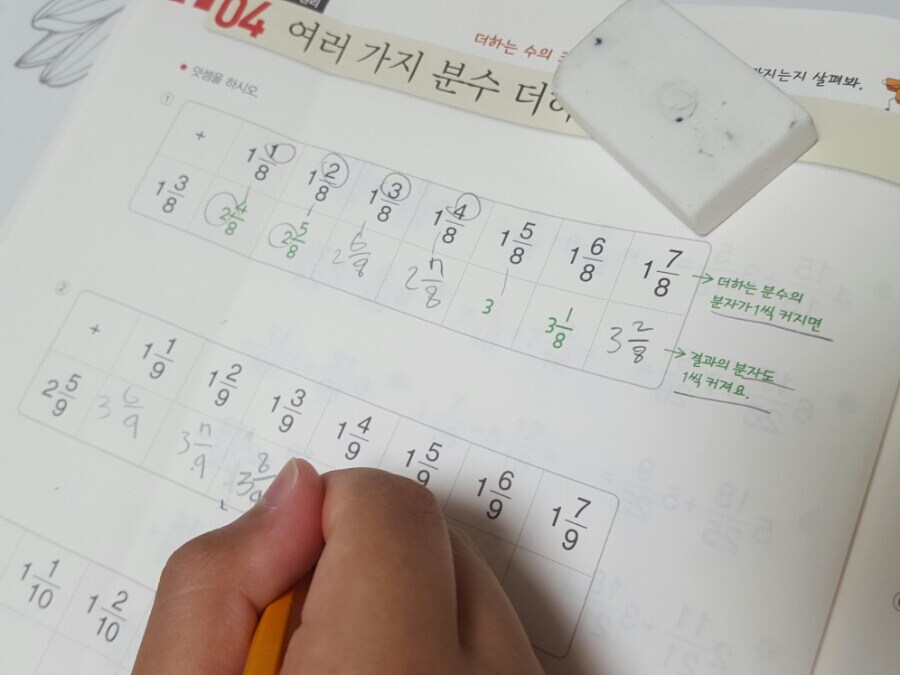 04 여러 가지 분수 더하
더하는 수의
지는지 살펴봐.
덧셈을 하시오
①
+ 1 1/8 1 2/8 1 3/8 1 4/8 1 5/8 1 6/8 1 7/8
1 3/8 2 4/8 2 5/8 2 6/8 2 7/8 3 3 1/8 3 2/8
더하는 분수의
분자가 1씩 커지면
결과의 분자도
1씩 커져요.
②
+ 1 1/9 1 2/9 1 3/9 1 4/9 1 5/9 1 6/9 1 7/9
2 5/9 3 6/9 3 7/9 3 8/9
1 1/10 1 2/10